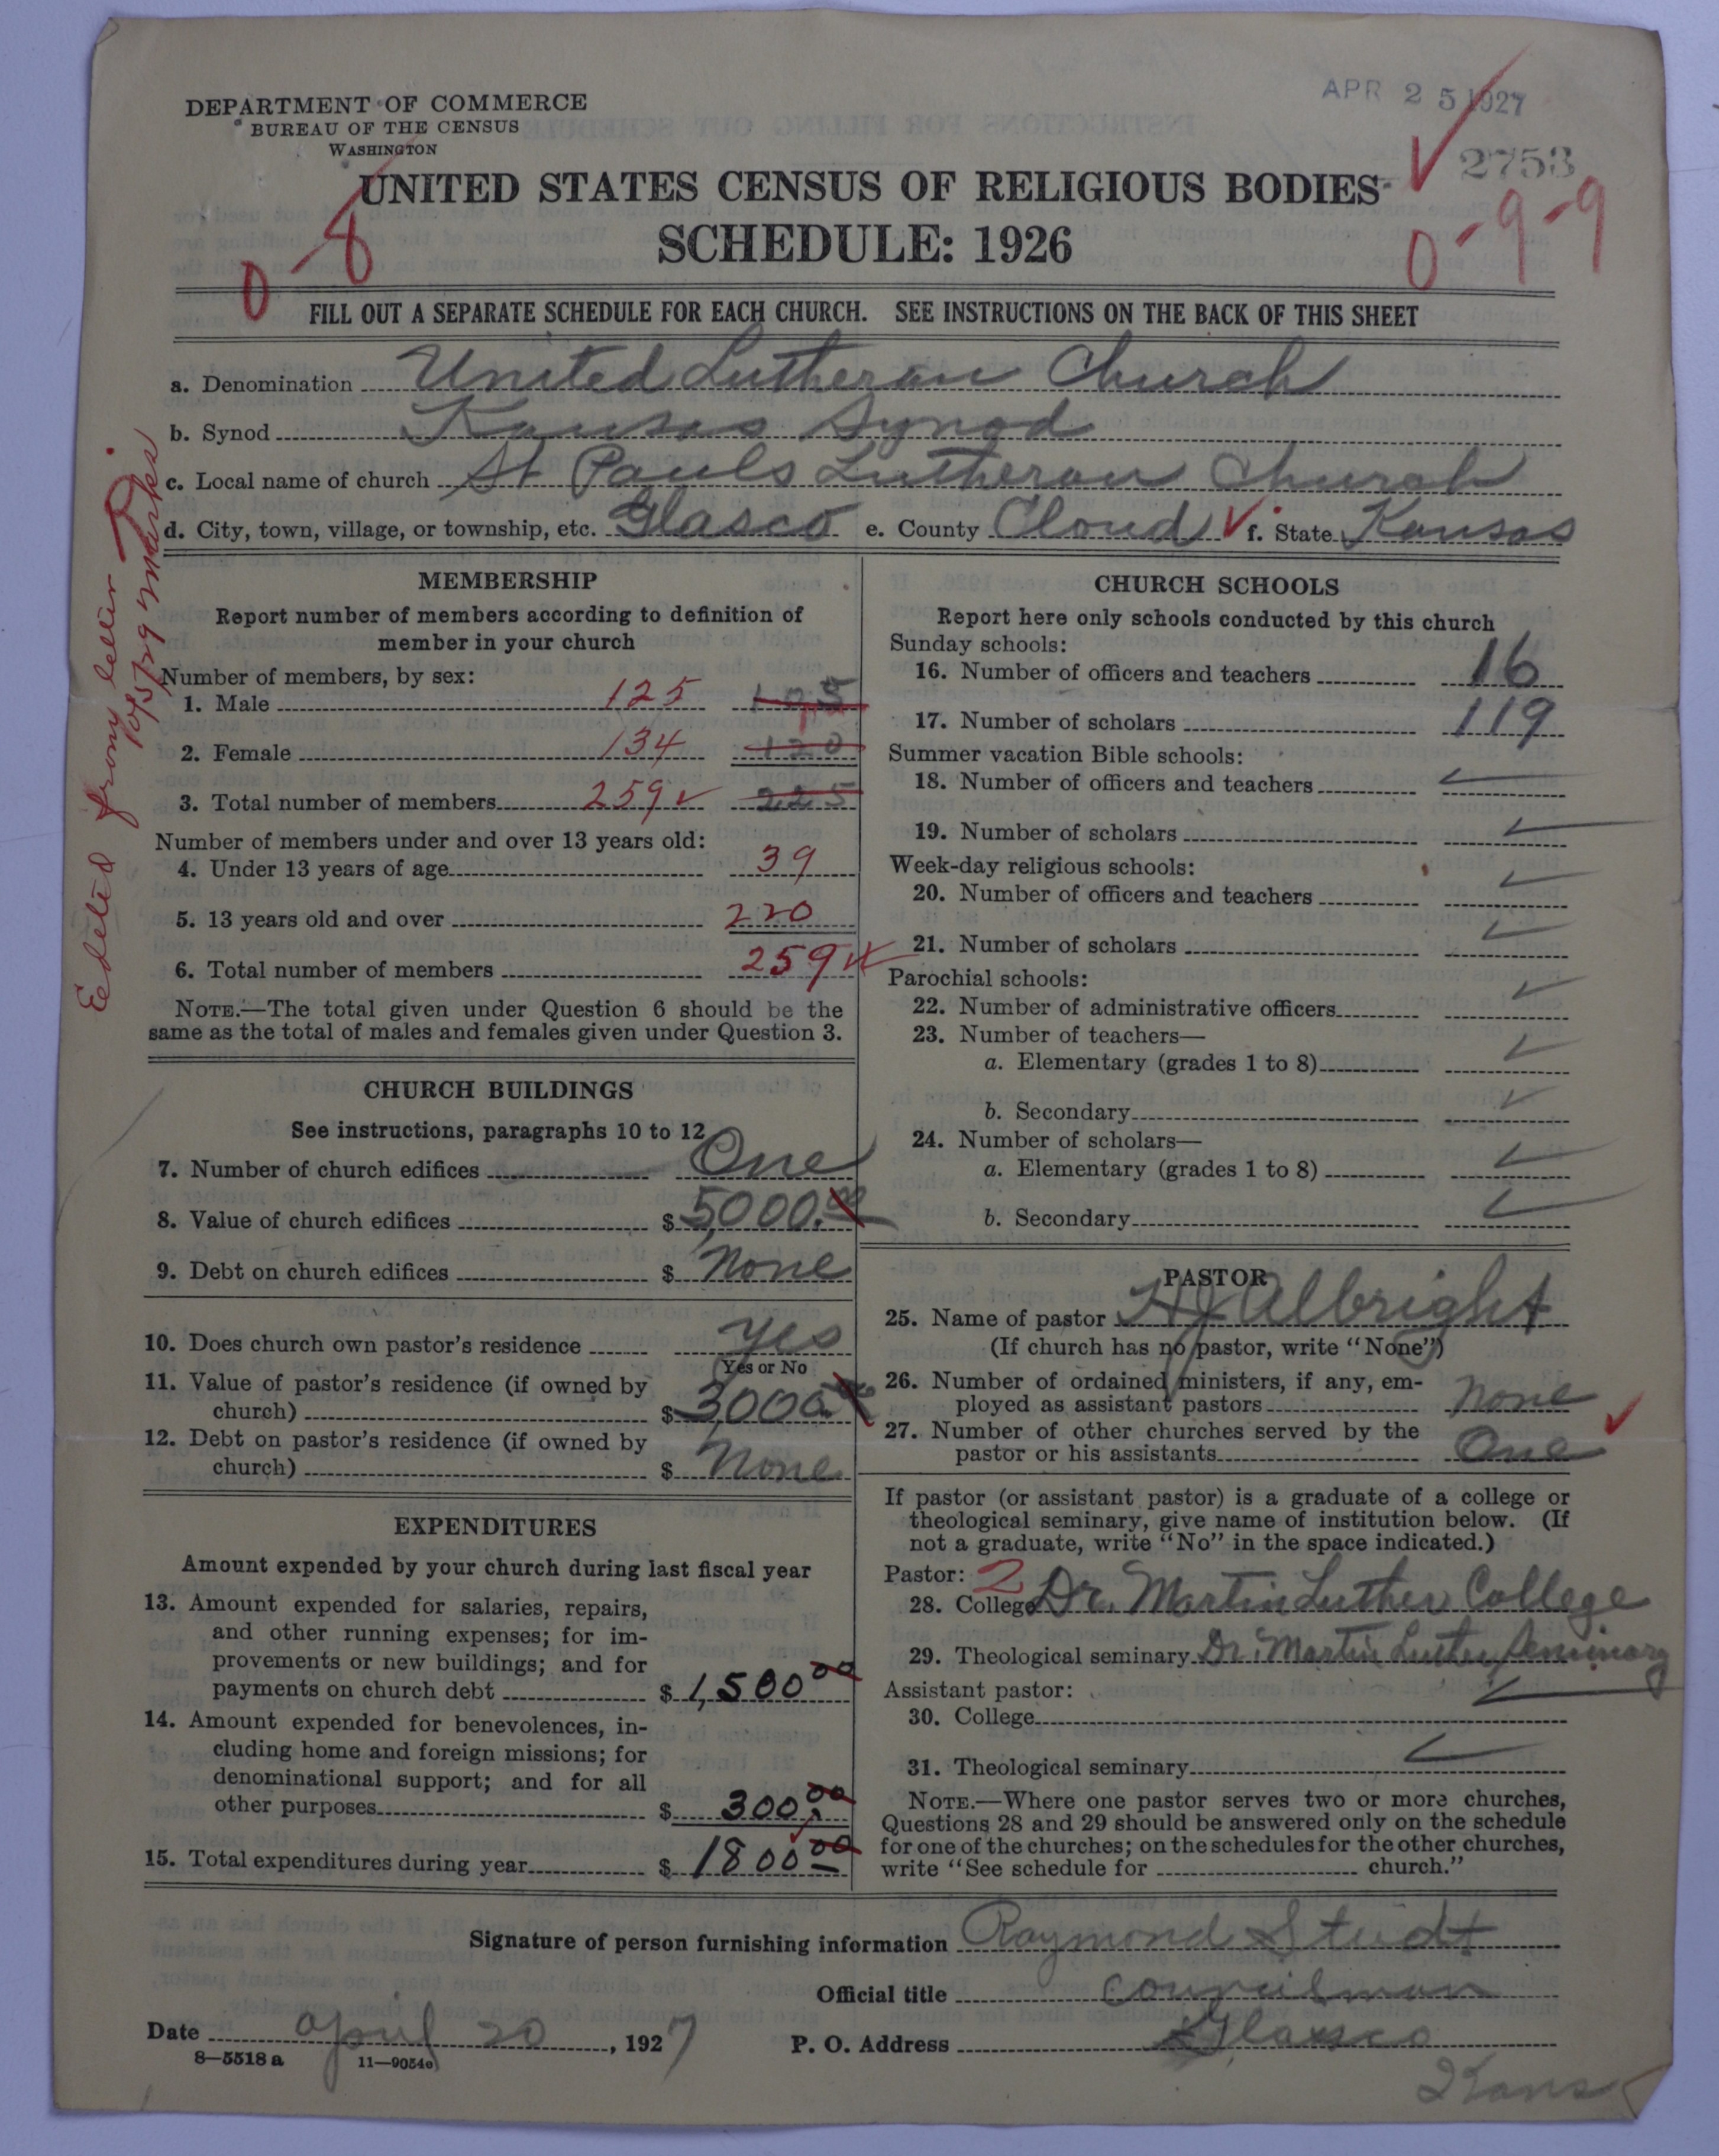 APR 25 1927
DEPARTMENT OF COMMERCE
BUREAU OF THE CENSUS
WASHINGTON
2753
UNITED STATES CENSUS OF RELIGIOUS BODIES
SCHEDULE: 1926
0-8
0-9-9
FILL OUT A SEPARATE SCHEDULE FOR EACH CHURCH. SEE INSTRUCTIONS ON THE BACK OF THIS SHEET
a. Denomination United Lutheran Church
b. Synod Kansas Synod
c. Local name of church St Pauls Lutheran Church
d. City, town, village, or township, etc. Glasco e. County Cloud f. State Kansas
Edited from letter
MEMBERSHIP
Report number of members according to definition of
member in your church
Number of members, by sex:
1. Male 125 105
2. Female 134 120
3. Total number of members 259 225
Number of members under and over 13 years old:
4. Under 13 years of age 39
5. 13 years old and over 220
6. Total number of members 259
NOTE.—The total given under Question 6 should be the
same as the total of males and females given under Question 3.
CHURCH BUILDINGS
See instructions, paragraphs 10 to 12
7. Number of church edifices One
8. Value of church edifices $ 5000.00
9. Debt on church edifices $ None
10. Does church own pastor's residence yes
(Yes or No)
11. Value of pastor's residence (if owned by
church) $ 3000.00
12. Debt on pastor's residence (if owned by
church) $ None
EXPENDITURES
Amount expended by your church during last fiscal year
13. Amount expended for salaries, repairs,
and other running expenses; for im-
provements or new buildings; and for
payments on church debt $ 1,500 00
14. Amount expended for benevolences, in-
cluding home and foreign missions; for
denominational support; and for all
other purposes $ 300.00
15. Total expenditures during year $ 1800 00
CHURCH SCHOOLS
Report here only schools conducted by this church
Sunday schools:
16. Number of officers and teachers 16
17. Number of scholars 119
Summer vacation Bible schools:
18. Number of officers and teachers
19. Number of scholars
Week-day religious schools:
20. Number of officers and teachers
21. Number of scholars
Parochial schools:
22. Number of administrative officers
23. Number of teachers—
a. Elementary (grades 1 to 8)
b. Secondary
24. Number of scholars—
a. Elementary (grades 1 to 8)
b. Secondary
PASTOR
25. Name of pastor H J Albright
(If church has no pastor, write "None")
26. Number of ordained ministers, if any, em-
ployed as assistant pastors None
27. Number of other churches served by the
pastor or his assistants One
If pastor (or assistant pastor) is a graduate of a college or
theological seminary, give name of institution below. (If
not a graduate, write "No" in the space indicated.)
Pastor: 2
28. College Dr. Martin Luther College
29. Theological seminary Dr. Martin Luther Seminary
Assistant pastor:
30. College
31. Theological seminary
NOTE.—Where one pastor serves two or more churches,
Questions 28 and 29 should be answered only on the schedule
for one of the churches; on the schedules for the other churches,
write "See schedule for church."
Signature of person furnishing information Raymond Studt
Official title Councilman
Date April 20, 1927 P. O. Address Glasco
8—5518 a 11—9054
Kans